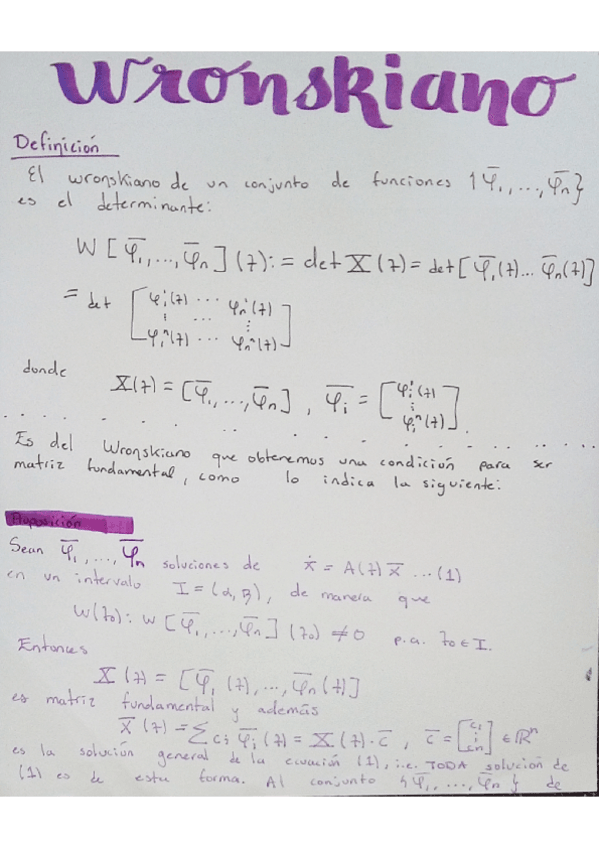 Wronskiano
Definición
El wronskiano de un conjunto de funciones {φ̄₁,...,φ̄ₙ}
es el determinante:
W[φ̄₁,...,φ̄ₙ](t):=det X(t)=det[φ̄₁(t)...φ̄ₙ(t)]
= det [φ₁¹(t) ... φₙ¹(t)
⋮ ... ⋮
φ₁ⁿ(t) ... φₙⁿ(t)]
donde
X(t) = [φ̄₁,...,φ̄ₙ] , φ̄ᵢ = [φᵢ¹(t) ⋮ φᵢⁿ(t)].
Es del Wronskiano que obtenemos una condición para ser
matriz fundamental, como lo indica la siguiente:
Proposición
Sean φ̄₁,...,φ̄ₙ soluciones de ẋ = A(t)x̄ ...(1)
en un intervalo I=(α,β), de manera que
W(t₀): W[φ̄₁,...,φ̄ₙ](t₀) ≠ 0 p.a. t₀∈I.
Entonces
X(t) = [φ̄₁(t),...,φ̄ₙ(t)]
es matriz fundamental y además
x̄(t) = Σcᵢφ̄ᵢ(t) = X(t)·c̄ , c̄=[c₁ ⋮ cₙ] ∈ℝⁿ
es la solución general de la ecuación (1), i.e. TODA solución de
(1) es de esta forma. Al conjunto {φ̄₁,...,φ̄ₙ} de